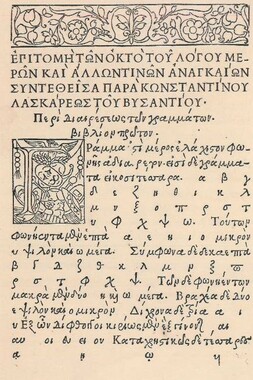 ΕΠΙΤΟΜΗ ΤΩΝ ΟΚΤΟ ΤΟΥ ΛΟΓΟΥ ΜΕ-
ΡΩΝ ΚΑΙ ΑΛΛΩΝ ΤΙΝΩΝ ΑΝΑΓΚΑΙΩΝ
ΣΥΝΤΕΘΕΙΣΑ ΠΑΡΑ ΚΩΝΣΤΑΝΤΙΝΟΥ
ΛΑΣΚΑΡΕΩΣ ΤΟΥ ΒΥΣΑΝΤΙΟΥ·
Περὶ Διαιρέσεως τῶν γραμμάτων.
Βιβλίον πρῶτον.
Γράμμα ἐστὶ μέρος ἐλάχιστον φω-
νῆς ἀδιαίρετον. εἰσὶ δὲ γράμμα-
τα εἰκοσιτέσσαρα. α β γ
δ ε ζ η θ ι κ λ
μ ν ξ ο π ρ σ τ
υ φ χ ψ ω. Τούτων
φωνήεντα μὲν ἑπτὰ α ε η ι ο μικρὸν
υ ψιλὸν καὶ ω μέγα. Σύμφωνα δὲ δεκαεπτὰ
β γ δ ζ θ κ λ μ ν ξ π
ρ σ τ φ χ ψ. Τῶν δὲ φωνηέντων
μακρὰ μὲν δύο η καὶ ω μέγα. Βραχέα δὲ δύο
ε ψιλὸν καὶ ο μικρόν. Δίχρονα δὲ τρία α ι
υ Ἐξ ὧν Δίφθογγοι κυρίως μὲν ἓξ γίνονται αι
αυ οι ει ευ ου Καταχρηστικῶς δὲ τέσσαρες
ᾳ ῃ ῳ υι